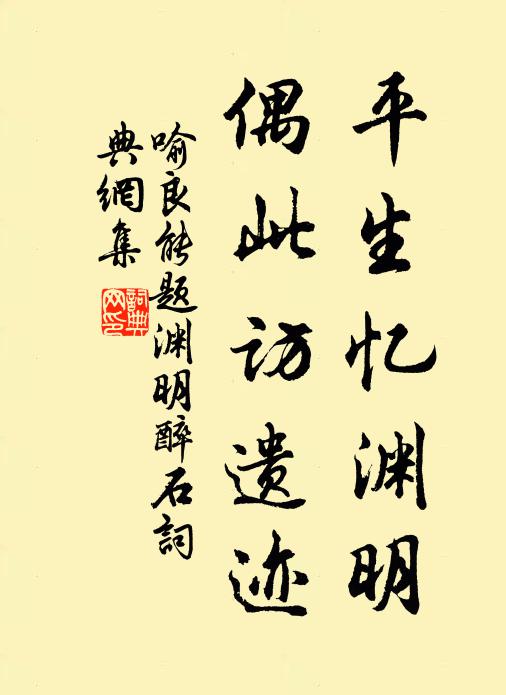 平生忆渊明
偶此访遗迹
喻良能题渊明醉石詞
典網集
詞典网印